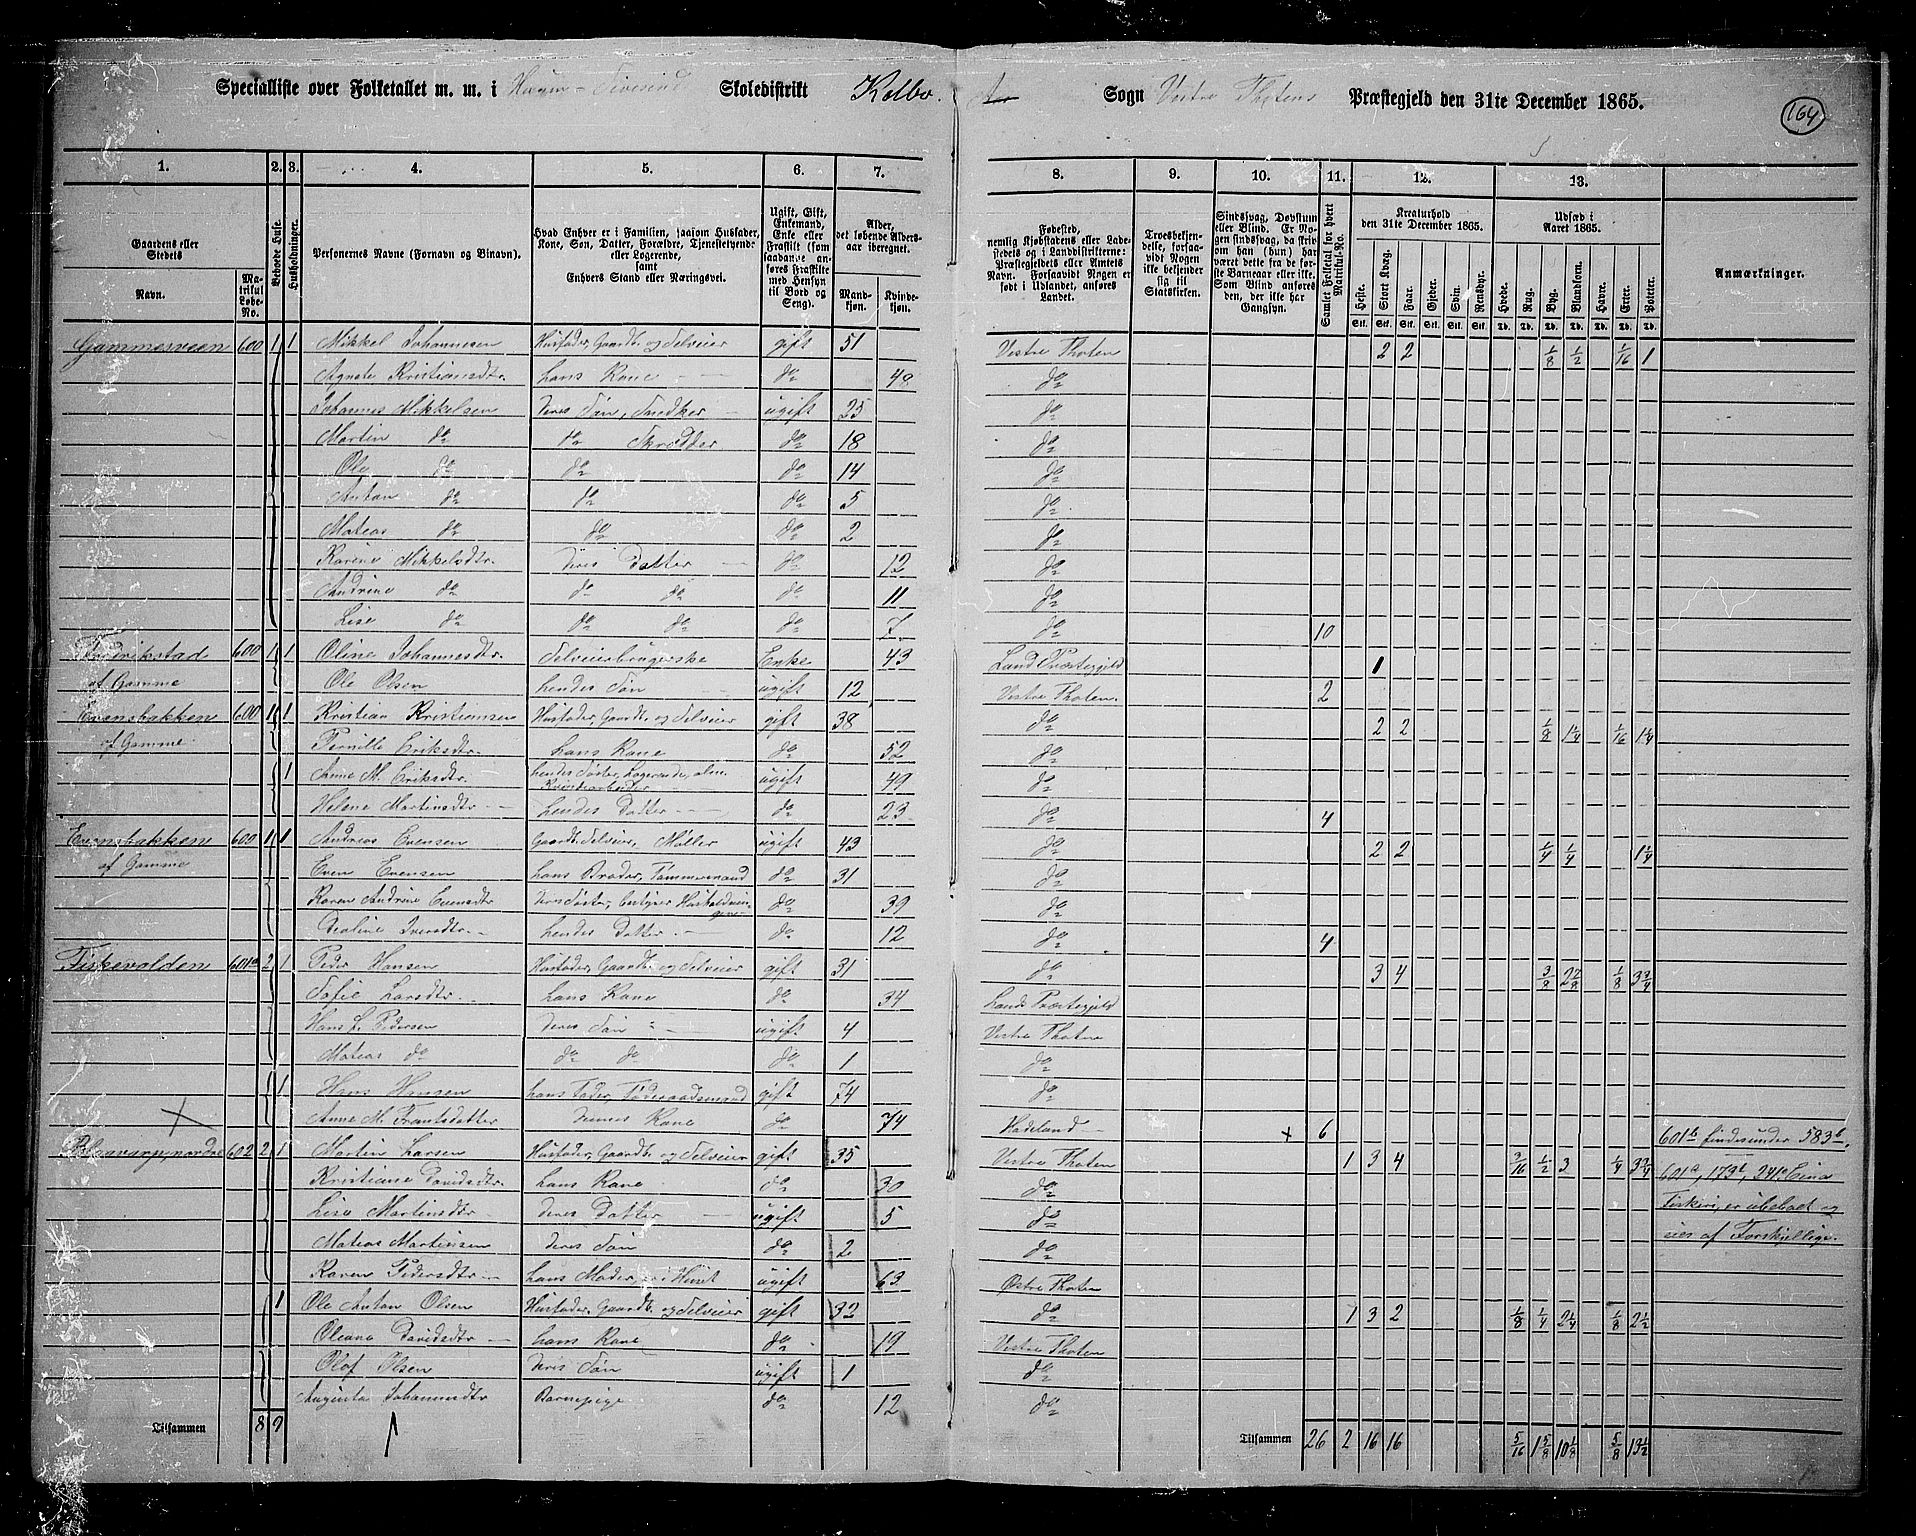 Specialliste over Folketallet m. m. i Skoledistrikt Kolbo. Sogn Vestre Thotens Præstegjeld den 31te December 1865. 164
1. 2. 3. 4. 5. 6. 7. 8. 9. 10. 11. 12. 13.
Gaardens eller Stedets Navn. Matrikul Løbe-No. Beboede Huse. Husholdninger. Personernes Navne (Fornavn og Binavn). Hvad Enhver er i Familien, saasom Husfader, Kone, Søn, Datter, Forældre, Tjenestetyende eller Logerende, samt Enhvers Stand eller Næringsvei. Ugift, Gift, Enkemand, Enke eller Fraskilt (som saadanne anføres Fraskilte med Hensyn til Bord og Seng). Alder, det løbende Aldersaar iberegnet. Mandkjøn. Kvindekjøn. Fødested, nemlig Kjøbstadens eller Ladestedets og i Landdistrikterne: Præstegjeldets eller Amtets Navn. Forsaavidt Nogen er født i Udlandet, anføres Landet. Troesbekjendelse, forsaavidt Nogen ikke bekjender sig til Statskirken. Sindssvag, Døvstum eller Blind. Er Nogen sindssvag, da skriv om han (hun) har været dette fra de første Barneaar eller ikke. Som Blind anføres den, der ikke har Gangsyn. Samlet Folketal for hvert Matrikul-No. Kreaturhold den 31te December 1865. Heste. Stort Kvæg. Faar. Gjeder. Svin. Rensdyr. Udsæd i Aaret 1865. Hvede. Rug. Byg. Blandkorn. Havre. Erter. Poteter. Anmærkninger.
Gammesveen 600 1 1 Mikkel Johannesen Husfader, Gaardb. og Selveier gift 51 Vestre Thoten 2 2 1/8 1/2 1/16 1
Agnete Kristiansdtr. hans Kone do 48 do
Johannes Mikkelsen deres Søn, Snedker ugift 25 do
Martin do do Skrædder do 18 do
Ole do do do 14 do
Anton do do do 5 do
Mateas do do do 2 do
Karine Mikkelsdtr. deres Datter do 12 do
Andrine do do do do 11 do
Lise do do do do 7 do 10
Fredrikstad 600 1 1 Oline Johannesdtr. Selveierbrugerske Enke 43 Land Præstegjeld 1
af Gamme Ole Olsen hendes Søn ugift 12 Vestre Thoten. 2
Evensbakken 600 1 1 Kristian Kristiansen Husfader, Gaardb. og Selveier gift 38 do 2 2 1/8 1 1/4 1/16 1 1/4
af Gamme Pernille Eriksdtr. hans Kone do 52 do
1 Anne M. Eriksdtr. hendes Søster, Logerende, alm. Kvindearbeider ugift 49 do
Helene Martinsdtr. hendes Datter do 23 do 4
Evensbakken 600 1 1 Andreas Evensen Gaardb. Selveier, Møller ugift 43 do 2 2 1/4 1/4 1 1/4
af Gamme Even Evensen hans Broder, Tømmermand do 31 do
Karen Andrine Evensdtr deres Søster, bestyrer Husholdningen do 39 do
Iversdtr. hendes Datter do 12 do 4
Fiskevolden 601a 2 1 Peder Hansen Husfader, Gaardb. og Selveier gift 31 do 3 4 3/8 2 2/8 1/8 3 3/4
Sofie Larsdtr. hans Kone do 34 Lands Præstegjeld
Hans L. Pedersen deres Søn ugift 4 Vestre Thoten
Mateas do do do do 1 do
1 Hans Hansen hans Fader, Føderaadsmand gift 74 do
Anne M. Frantsdatter dennes Kone do 74 Hadeland x 6 601b findes under 583b.
Blaavarp, nordre 602 2 1 Martin Larsen Husfader, Gaardb. og Selveier gift 35 Vestre Thoten 1 3 4 3/16 1/2 3 1/4 3 3/4
Kristiane Davidsdtr. hans Kone do 30 do 601a, 173b, 241c Eina
Lise Martinsdtr. deres Datter ugift 5 do Fiskeri, er ubeboet og
Mateas Martinsen deres Søn do 2 do eies af Forskjellige.
Karen Pedersdtr. hans Moder, i Huset ugift 63 Østre Thoten
1 Ole Anton Olsen Husfader, Gaardb. og Selveier gift 32 do 1 3 2 1/8 1/4 2 1/4 1/8 2 1/2
Oleana Davidsdtr. hans Kone do 19 Vestre Thoten
Olaf Olsen deres Søn ugift 1 do
Augusta Johannesdtr Barnepige do 12 do
Tilsammen 8 9 Tilsammen 26 2 16 16 5/16 1 5/8 10 1/8 5/8 13 1/2